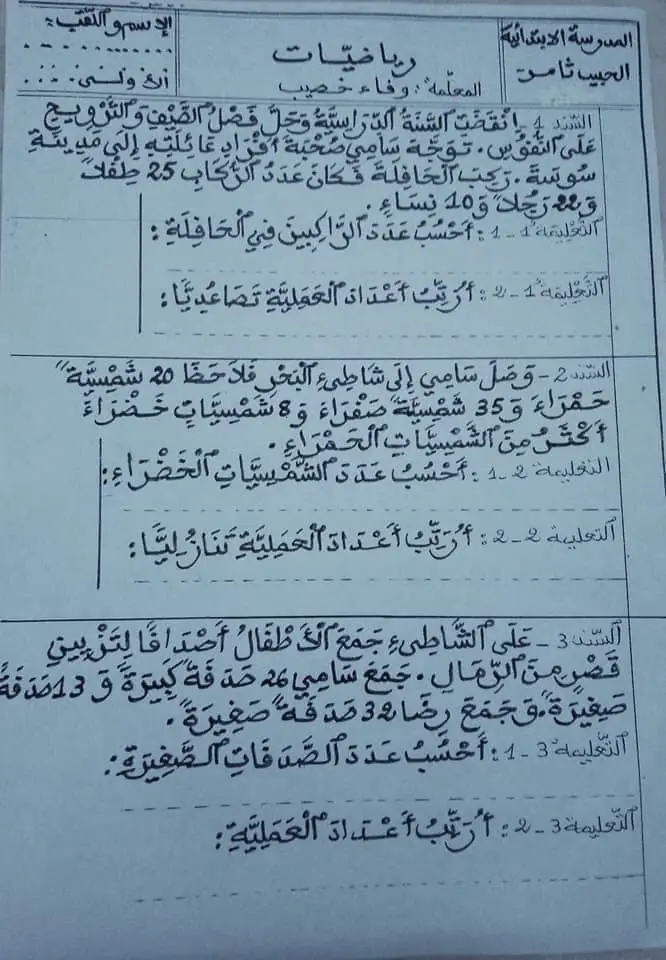 المدرسة الابتدائية
الحبيب ثامر
رياضيّات
المعلّمة: وفاء خصيب
الإسم و اللّقب:
الأولى:
السّند 1 - اِنْقَضَتِ السَّنَةُ الدِّرَاسِيَّةُ وَحَلَّ فَصْلُ الصَّيْفِ وَالتَّرْوِيحِ
عَلَى النُّفُوسِ. تَوَجَّهَ سَامِي صُحْبَةَ أَفْرَادِ عَائِلَتِهِ إِلَى مَدِينَةِ
سُوسَةَ. رَكِبَ الْحَافِلَةَ فَكَانَ عَدَدُ الرُّكَّابِ 25 طِفْلاً
وَ 22 رَجُلاً وَ 10 نِسَاءٍ.
التّعليمة 1-1: أَحْسُبُ عَدَدَ الرَّاكِبِينَ فِي الْحَافِلَةِ:
التّعليمة 1-2: أُرَتِّبُ أَعْدَادَ الْعَمَلِيَّةِ تَصَاعُدِيًّا:
السّند 2 - وَصَلَ سَامِي إِلَى شَاطِئِ الْبَحْرِ فَلَاحَظَ 20 شَمْسِيَّةً
حَمْرَاءَ وَ 35 شَمْسِيَّةً صَفْرَاءَ وَ 8 شَمْسِيَّاتٍ خَضْرَاءَ
أَكْثَرُ مِنَ الشَّمْسِيَّاتِ الْحَمْرَاءِ.
التعليمة 2-1: أَحْسُبُ عَدَدَ الشَّمْسِيَّاتِ الْخَضْرَاءِ:
التعليمة 2-2: أُرَتِّبُ أَعْدَادَ الْعَمَلِيَّةِ تَنَازُلِيًّا:
السّند 3 - عَلَى الشَّاطِئِ جَمَعَ الْأَطْفَالُ أَصْدَافًا لِتَزْيِينِ
قَصْرٍ مِنَ الرِّمَالِ. جَمَعَ سَامِي 26 صَدَفَةً كَبِيرَةً وَ 13 صَدَفَةً
صَغِيرَةً. وَ جَمَعَ رِضَا 32 صَدَفَةً صَغِيرَةً.
التّعليمة 3-1: أَحْسُبُ عَدَدَ الصَّدَفَاتِ الصَّغِيرَةِ:
التّعليمة 3-2: أُرَتِّبُ أَعْدَادَ الْعَمَلِيَّةِ: